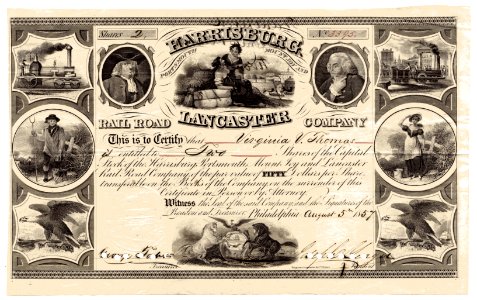 Shares 2
No. 3395
HARRISBURG,
PORTSMOUTH MOUNT JOY AND
LANCASTER
RAIL ROAD COMPANY
This is to Certify that Virginia V. Thomas
is entitled to Two Shares of the Capital
Stock of the Harrisburg Portsmouth, Mount Joy and Lancaster
Rail Road Company of the par value of FIFTY Dollars per Share
transferable on the Books of the Company on the surrender of this
Certificate in Person or by Attorney.
Witness the Seal of the said Company and the Signatures of the
President and Treasurer. Philadelphia August 5 1867
Treasurer